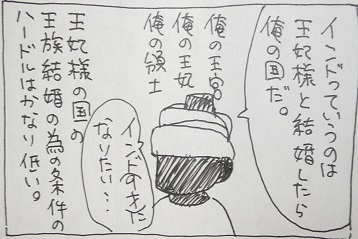 インドっていうのは
王妃様と結婚したら
俺の国だ。
俺の王宮
俺の王妃
俺の領土
インドの王に
なりたい…
王妃様の国の
王族結婚の為の条件の
ハードルはかなり低い。